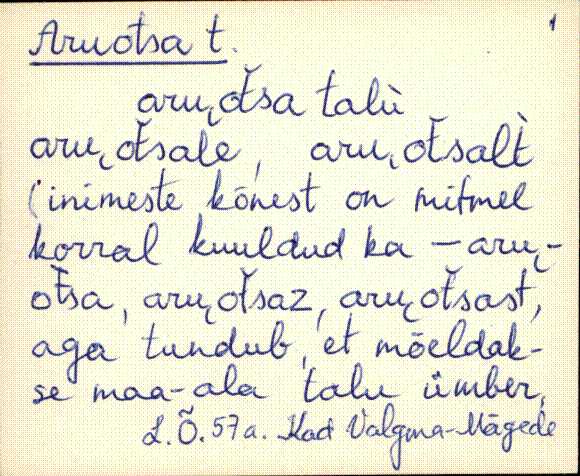 Aruotsa t. 1
aru˛oťsa talù
aru˛oťsale, aru˛oťsalt̀
(inimeste kõnest on mitmel
korral kuuldud ka – aru˛-
oťsa, aru˛oťsaz, aru˛oťsast,
aga tundub, et mõeldak-
se maa-ala talu ümber.
L.Õ. 57a. Kad Valgma-Mägede